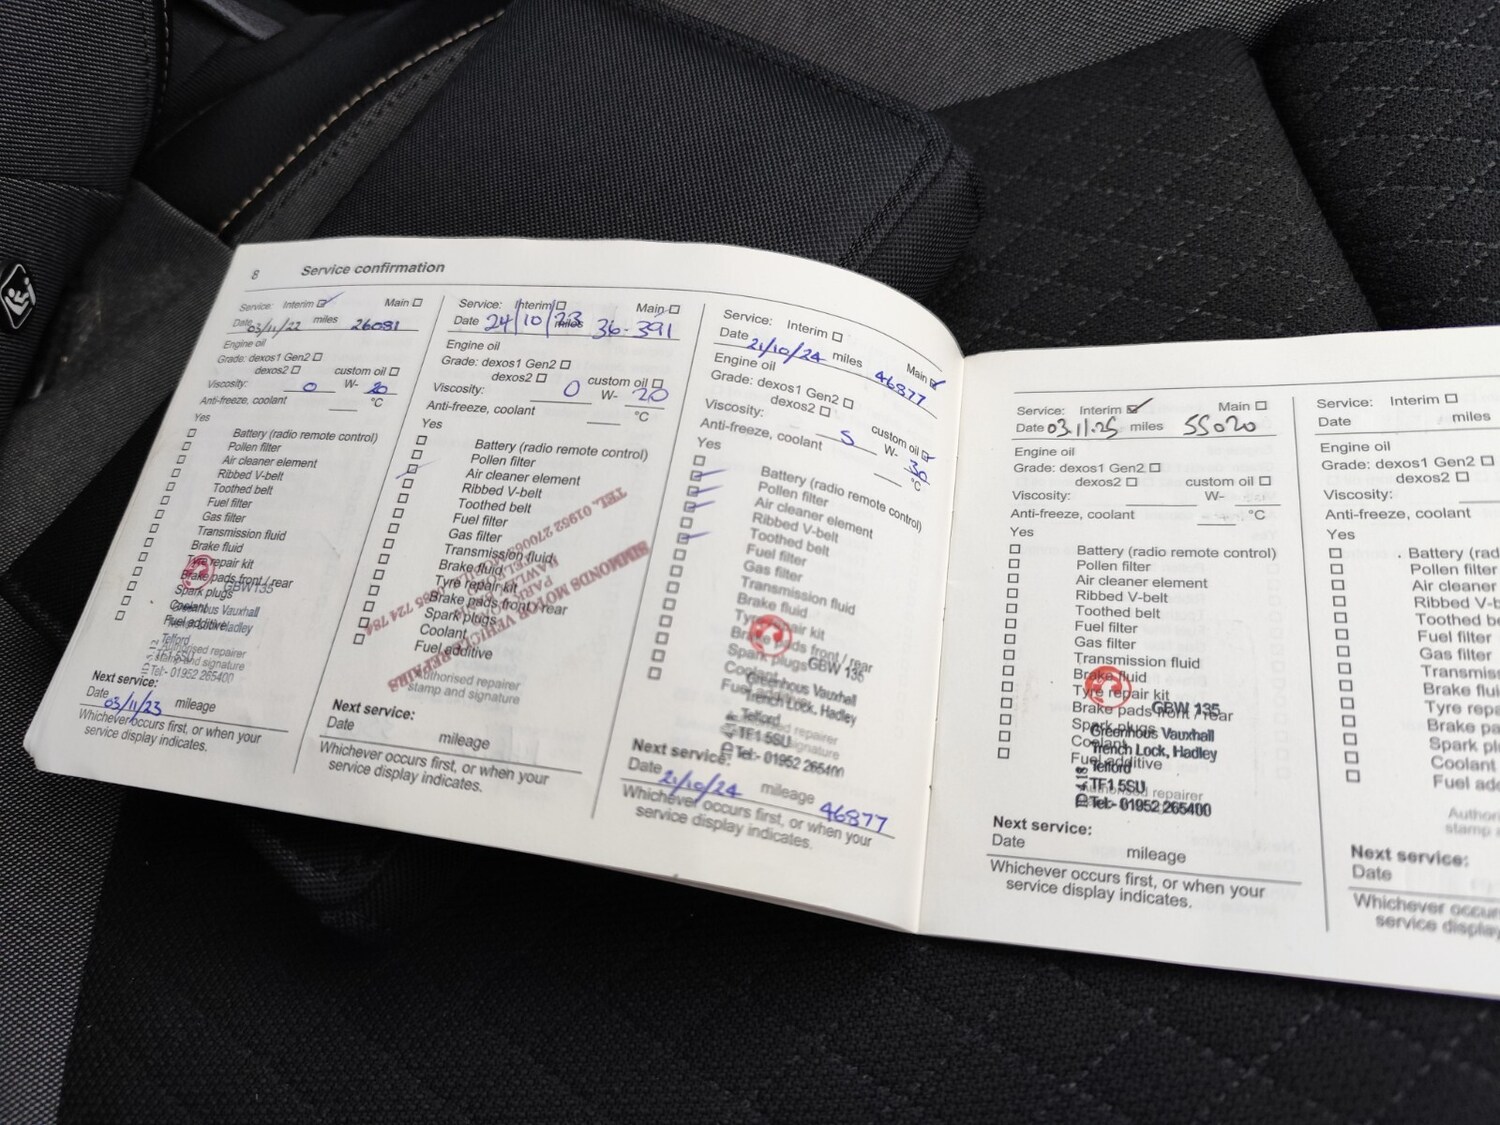 8 Service confirmation
Service: Interim Main
Date 03/11/22 miles 26081
Engine oil
Grade: dexos1 Gen2
dexos2 custom oil
Viscosity: 0 W- 20
Anti-freeze, coolant °C
Yes
Battery (radio remote control)
Pollen filter
Air cleaner element
Ribbed V-belt
Toothed belt
Fuel filter
Gas filter
Transmission fluid
Brake fluid
Tyre repair kit
Brake pads front / rear
GBW135
Spark plugs
Coolant
Fuel additive
Vauxhall
Hadley
Telford
TF1 5SU
Tel:- 01952 265400
Authorised repairer
stamp and signature
Next service:
Date 03/11/23 mileage
Whichever occurs first, or when your
service display indicates.
Service: Interim Main
Date 24/10/23 miles 36-391
Engine oil
Grade: dexos1 Gen2
dexos2 custom oil
Viscosity: 0 W- 20
Anti-freeze, coolant °C
Yes
Battery (radio remote control)
Pollen filter
Air cleaner element
Ribbed V-belt
Toothed belt
Fuel filter
Gas filter
Transmission fluid
Brake fluid
Tyre repair kit
Brake pads front / rear
Spark plugs
Coolant
Fuel additive
SIMMONDS MOTOR VEHICLE REPAIRS
Authorised repairer
stamp and signature
Next service:
Date mileage
Whichever occurs first, or when your
service display indicates.
Service: Interim Main
Date 21/10/24 miles 46877
Engine oil
Grade: dexos1 Gen2
dexos2 custom oil
Viscosity: 5 W- 30
Anti-freeze, coolant °C
Yes
Battery (radio remote control)
Pollen filter
Air cleaner element
Ribbed V-belt
Toothed belt
Fuel filter
Gas filter
Transmission fluid
Brake fluid
Tyre repair kit
Brake pads front / rear
Spark plugs GBW 135
Coolant
Fuel additive
Greenhous Vauxhall
Trench Lock, Hadley
Telford
TF1 5SU
Tel:- 01952 265400
Next service:
Date 21/10/24 mileage 46877
Whichever occurs first, or when your
service display indicates.
Service: Interim Main
Date 03.11.25 miles 55020
Engine oil
Grade: dexos1 Gen2
dexos2 custom oil
Viscosity: W-
Anti-freeze, coolant °C
Yes
Battery (radio remote control)
Pollen filter
Air cleaner element
Ribbed V-belt
Toothed belt
Fuel filter
Gas filter
Transmission fluid
Brake fluid
Tyre repair kit
Brake pads front / rear
GBW 135
Spark plugs
Coolant
Fuel additive
Greenhous Vauxhall
Trench Lock, Hadley
Telford
TF1 5SU
Tel:- 01952 265400
Authorised repairer
Next service:
Date mileage
Whichever occurs first, or when your
service display indicates.
Service: Interim
Date miles
Engine oil
Grade: dexos1 Gen2
dexos2
Viscosity:
Anti-freeze, coolant
Yes
Battery (rad
Pollen filter
Air cleaner
Ribbed V-b
Toothed be
Fuel filter
Gas filter
Transmiss
Brake flui
Tyre repa
Brake pa
Spark pl
Coolant
Fuel ad
Authori
stamp a
Next service:
Date
Whichever occur
service display